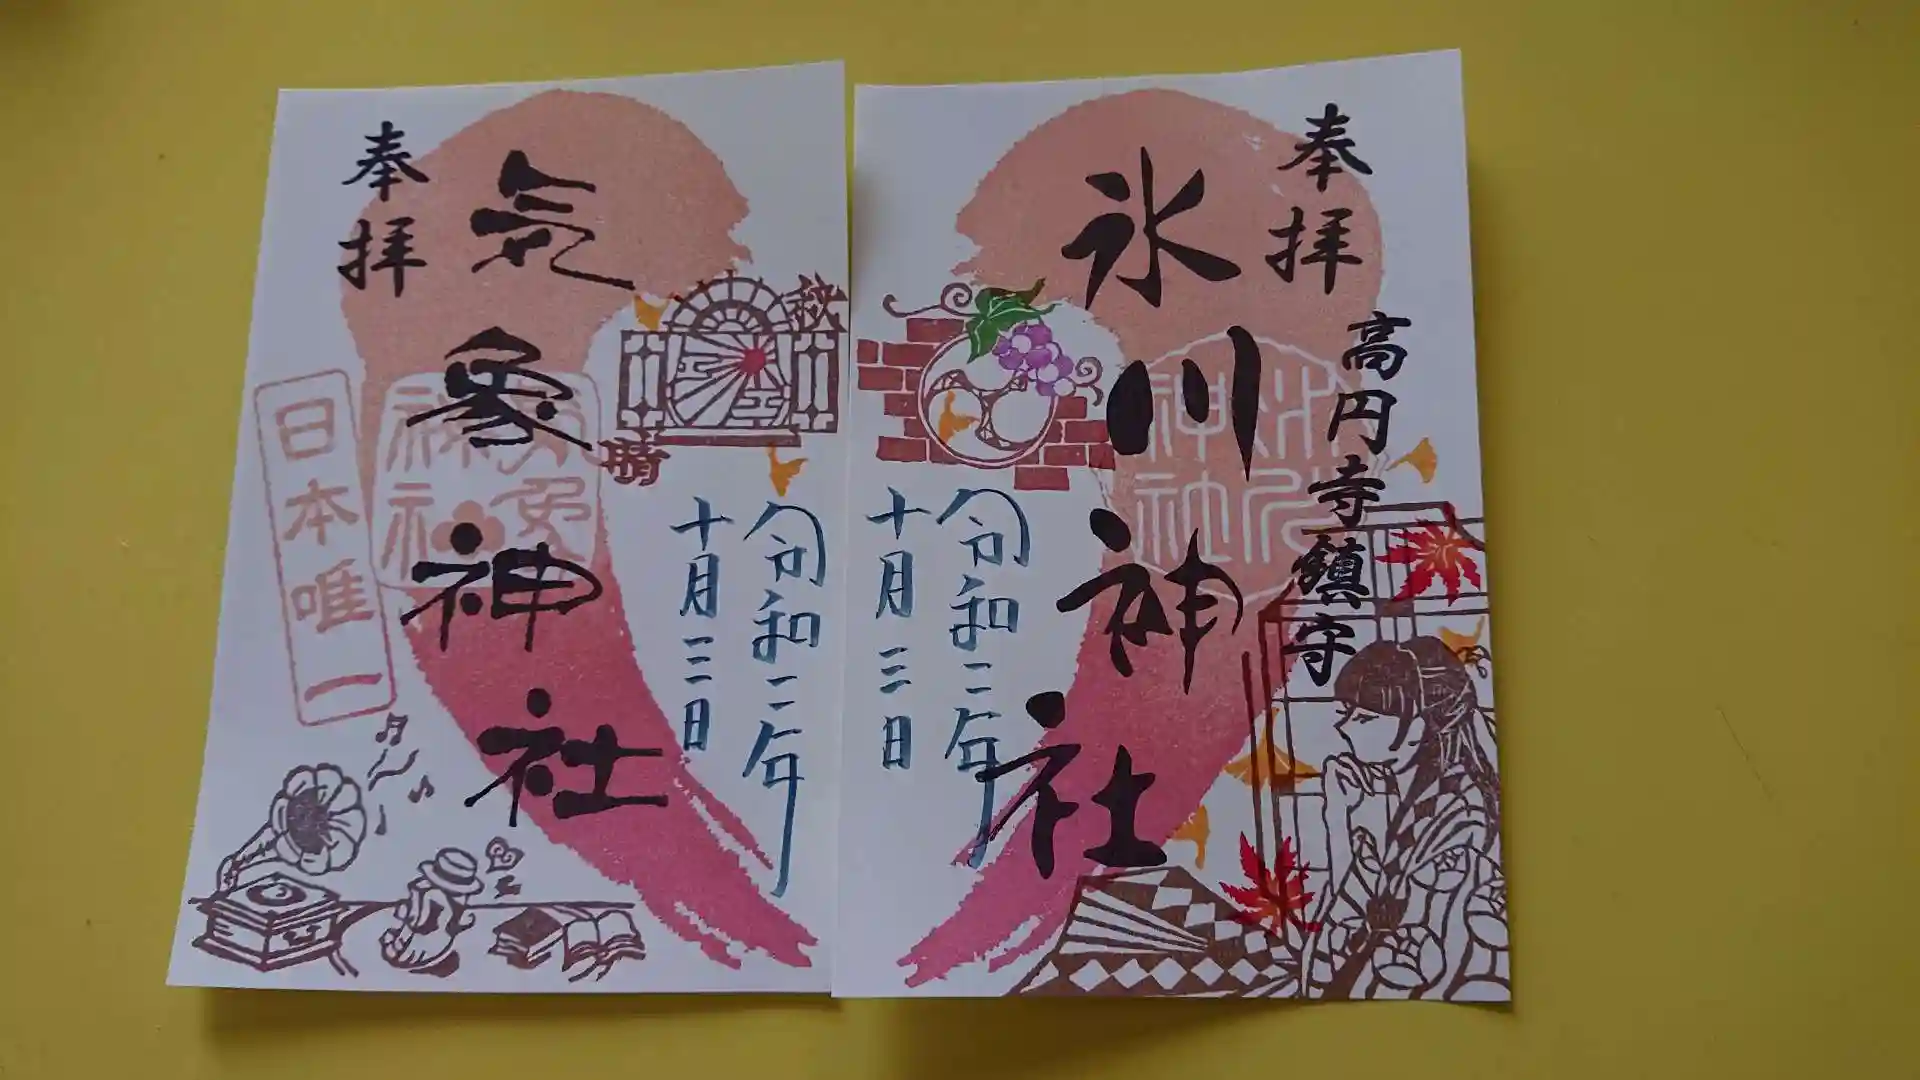 奉拝
高円寺鎮守
氷川神社
氷川神社
令和二年
十月三日
奉拝
気象神社
気象神社
日本唯一
秋
晴
令和二年
十月三日